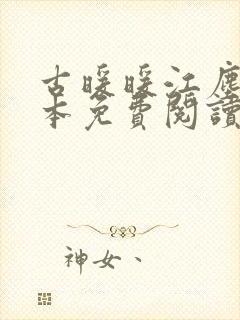 古暖暖江塵
本免費閱讀
神女、